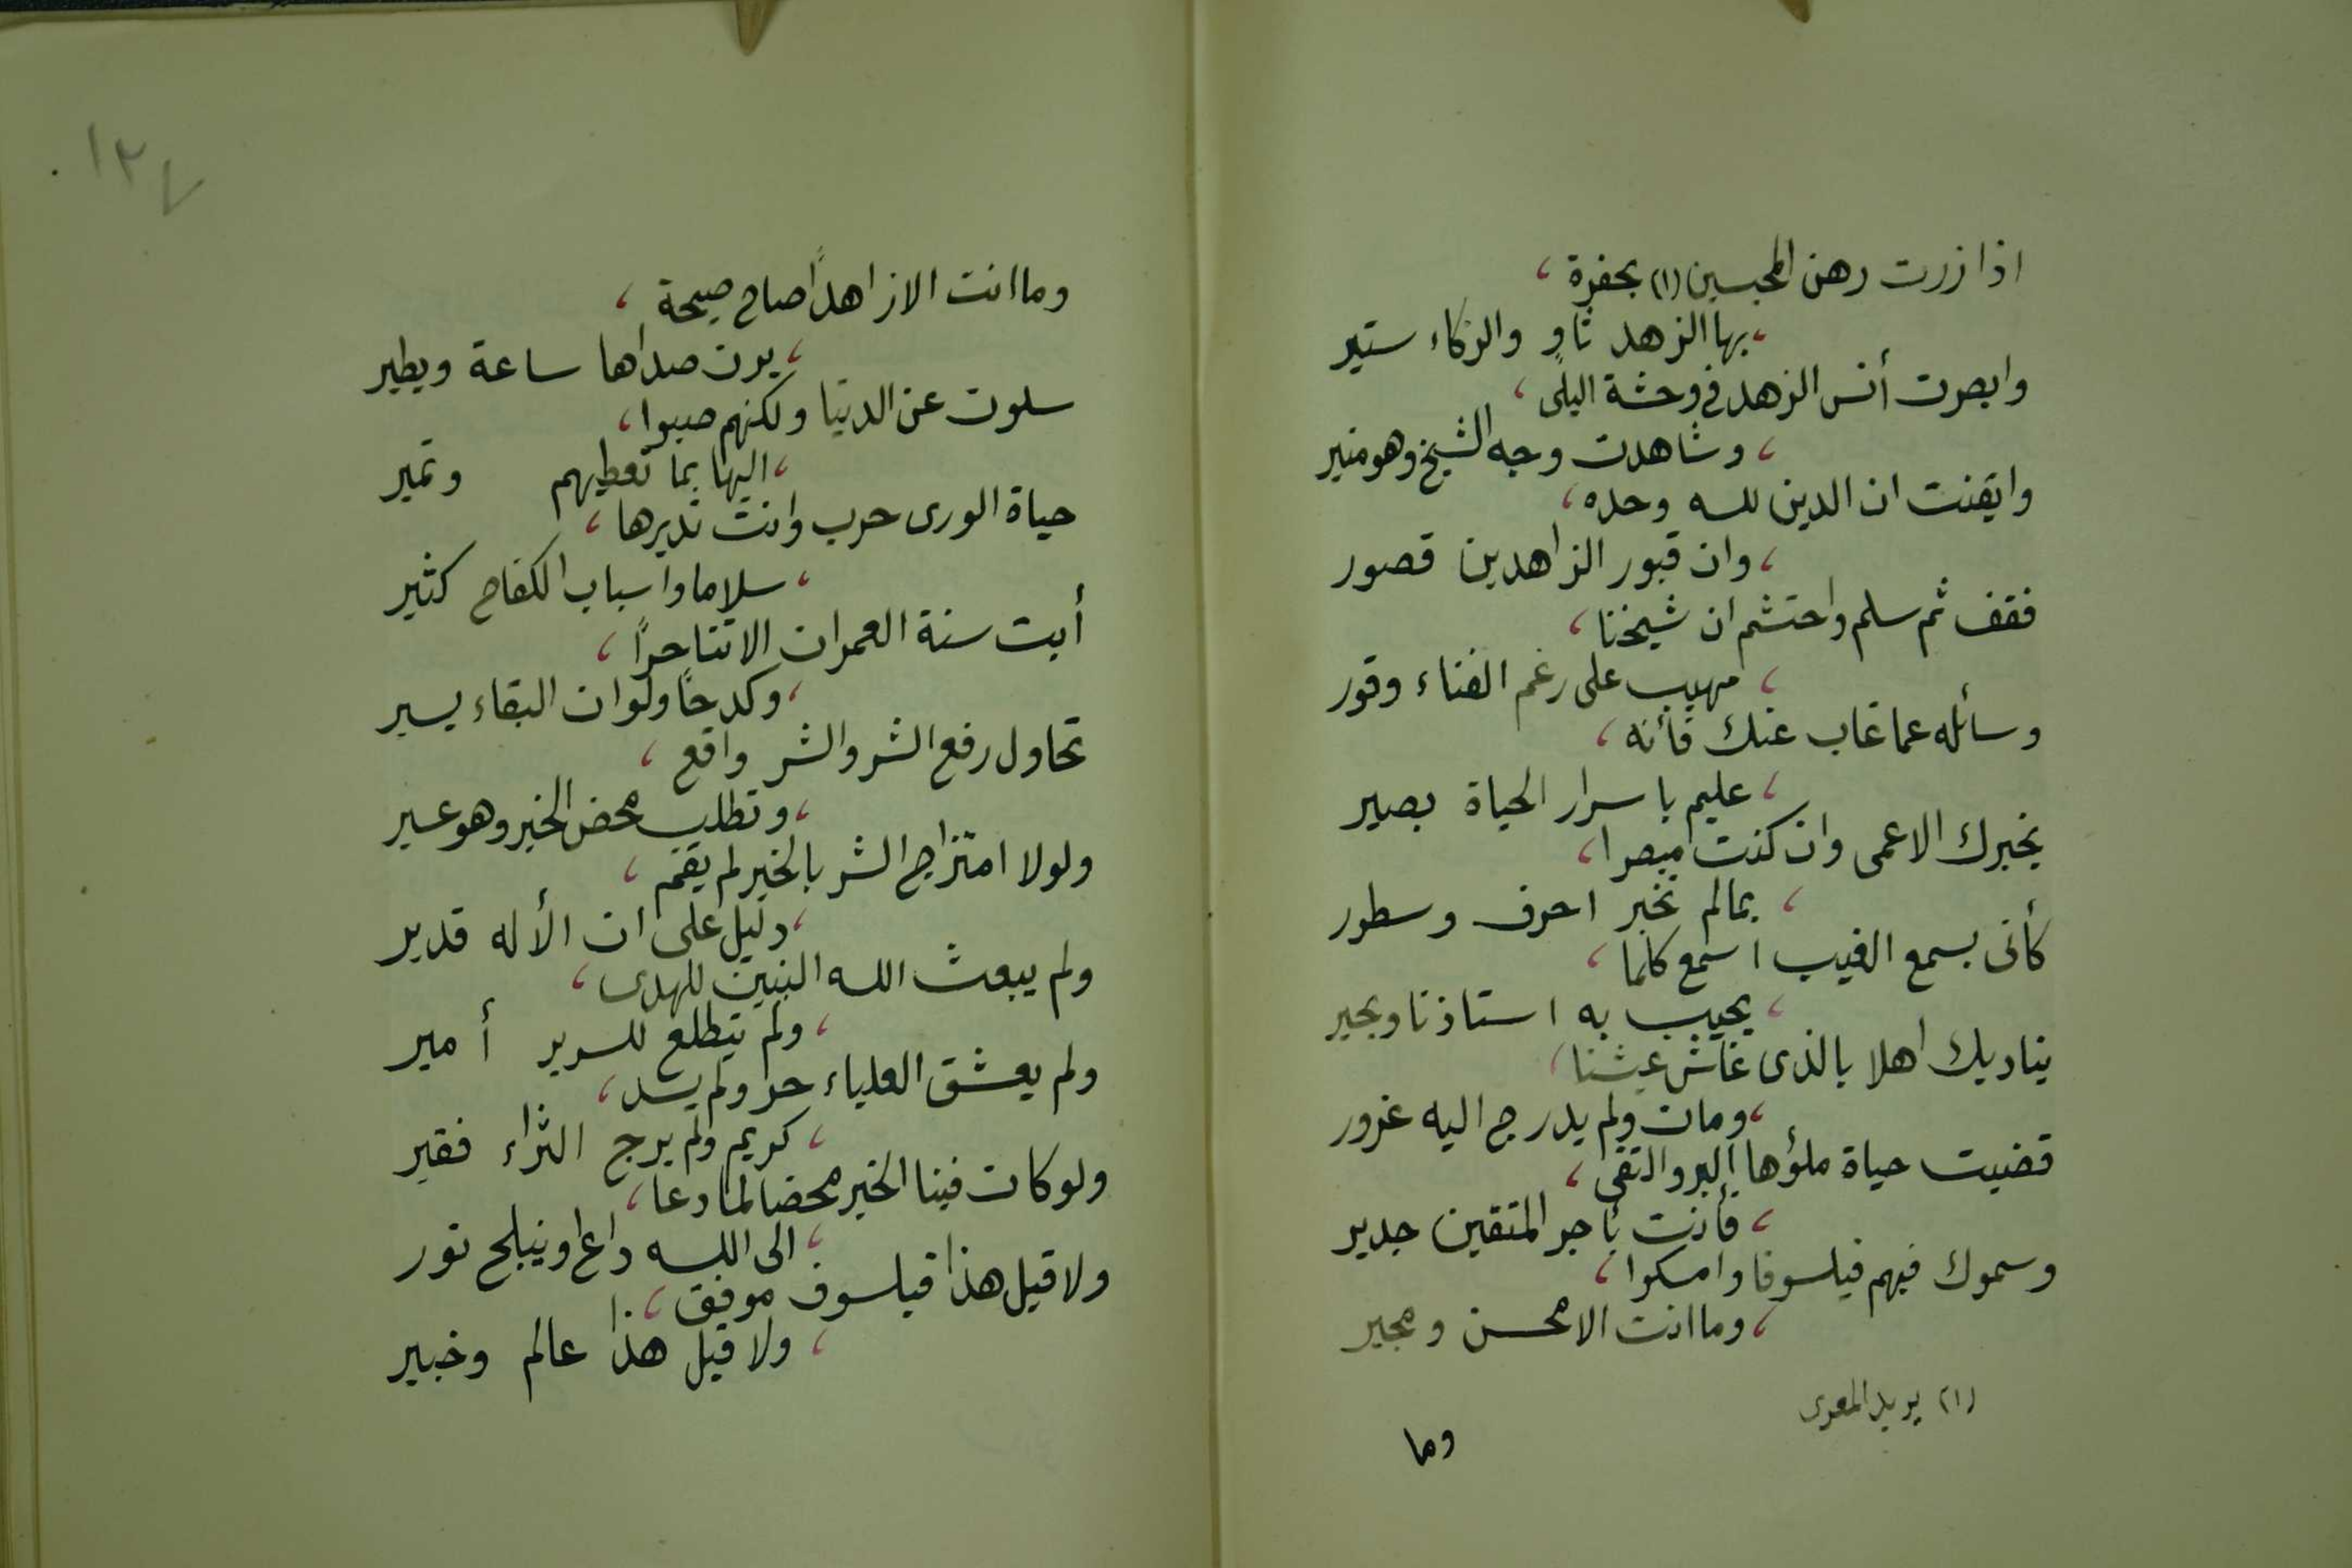 اذا زرت رهن المحبسين (١) بحفرة ،
، بها الزهد ثاوٍ والزكاء ستير
وابصرت أنس الزهد في وحشة البلى ،
، وشاهدت وجه الشيخ وهو منير
وايقنت ان الدين لله وحده ،
، وان قبور الزاهدين قصور
فقف ثم سلم واحتشم ان شيخنا ،
، مهيب على رغم الفناء وقور
وسائله عما غاب عنك فأنه ،
، عليم باسرار الحياة بصير
يخبرك الاعمى وان كنت مبصرا ،
، بمالم تخبر احرف وسطور
كأنى بسمع الغيب اسمع كلما ،
، يجيب به استاذنا ويجير
يناديك اهلا بالذى عاش عيشنا ،
، ومات ولم يدرج اليه غرور
قضيت حياة ملؤها البر والتقى ،
، فأنت بأجر المتقين جدير
وسموك فيهم فيلسوفا وامسكوا ،
، وما انت الا محسن ومجير
(١) يريد المعرى
وما
١٢٧
وما انت الا زاهدًا صاح صيحة ،
، يرن صداها ساعة ويطير
سلوت عن الدنيا ولكنهم صبوا ،
، اليها بما تعطيهم وتمير
حياة الورى حرب وانت تديرها ،
، سلاما واسباب الكفاح كثير
أبت سنة العمران الا تناحرًا ،
، وكدحًا ولو ان البقاء يسير
تحاول رفع الشر والشر واقع ،
، وتطلب محض الخير وهو عسير
ولولا امتزاج الشر بالخير لم يقم ،
، دليل على ان الأله قدير
ولم يبعث الله النبيين للهدى ،
، ولم يتطلع للسرير أمير
ولم يعشق العلياء حر ولم يسد ،
، كريم ولم يرج الثراء فقير
ولو كان فينا الخير محضا لما دعا ،
، الى الله داع او ينبلج نور
ولا قيل هذا فيلسوف موفق ،
، ولا قيل هذا عالم وخبير